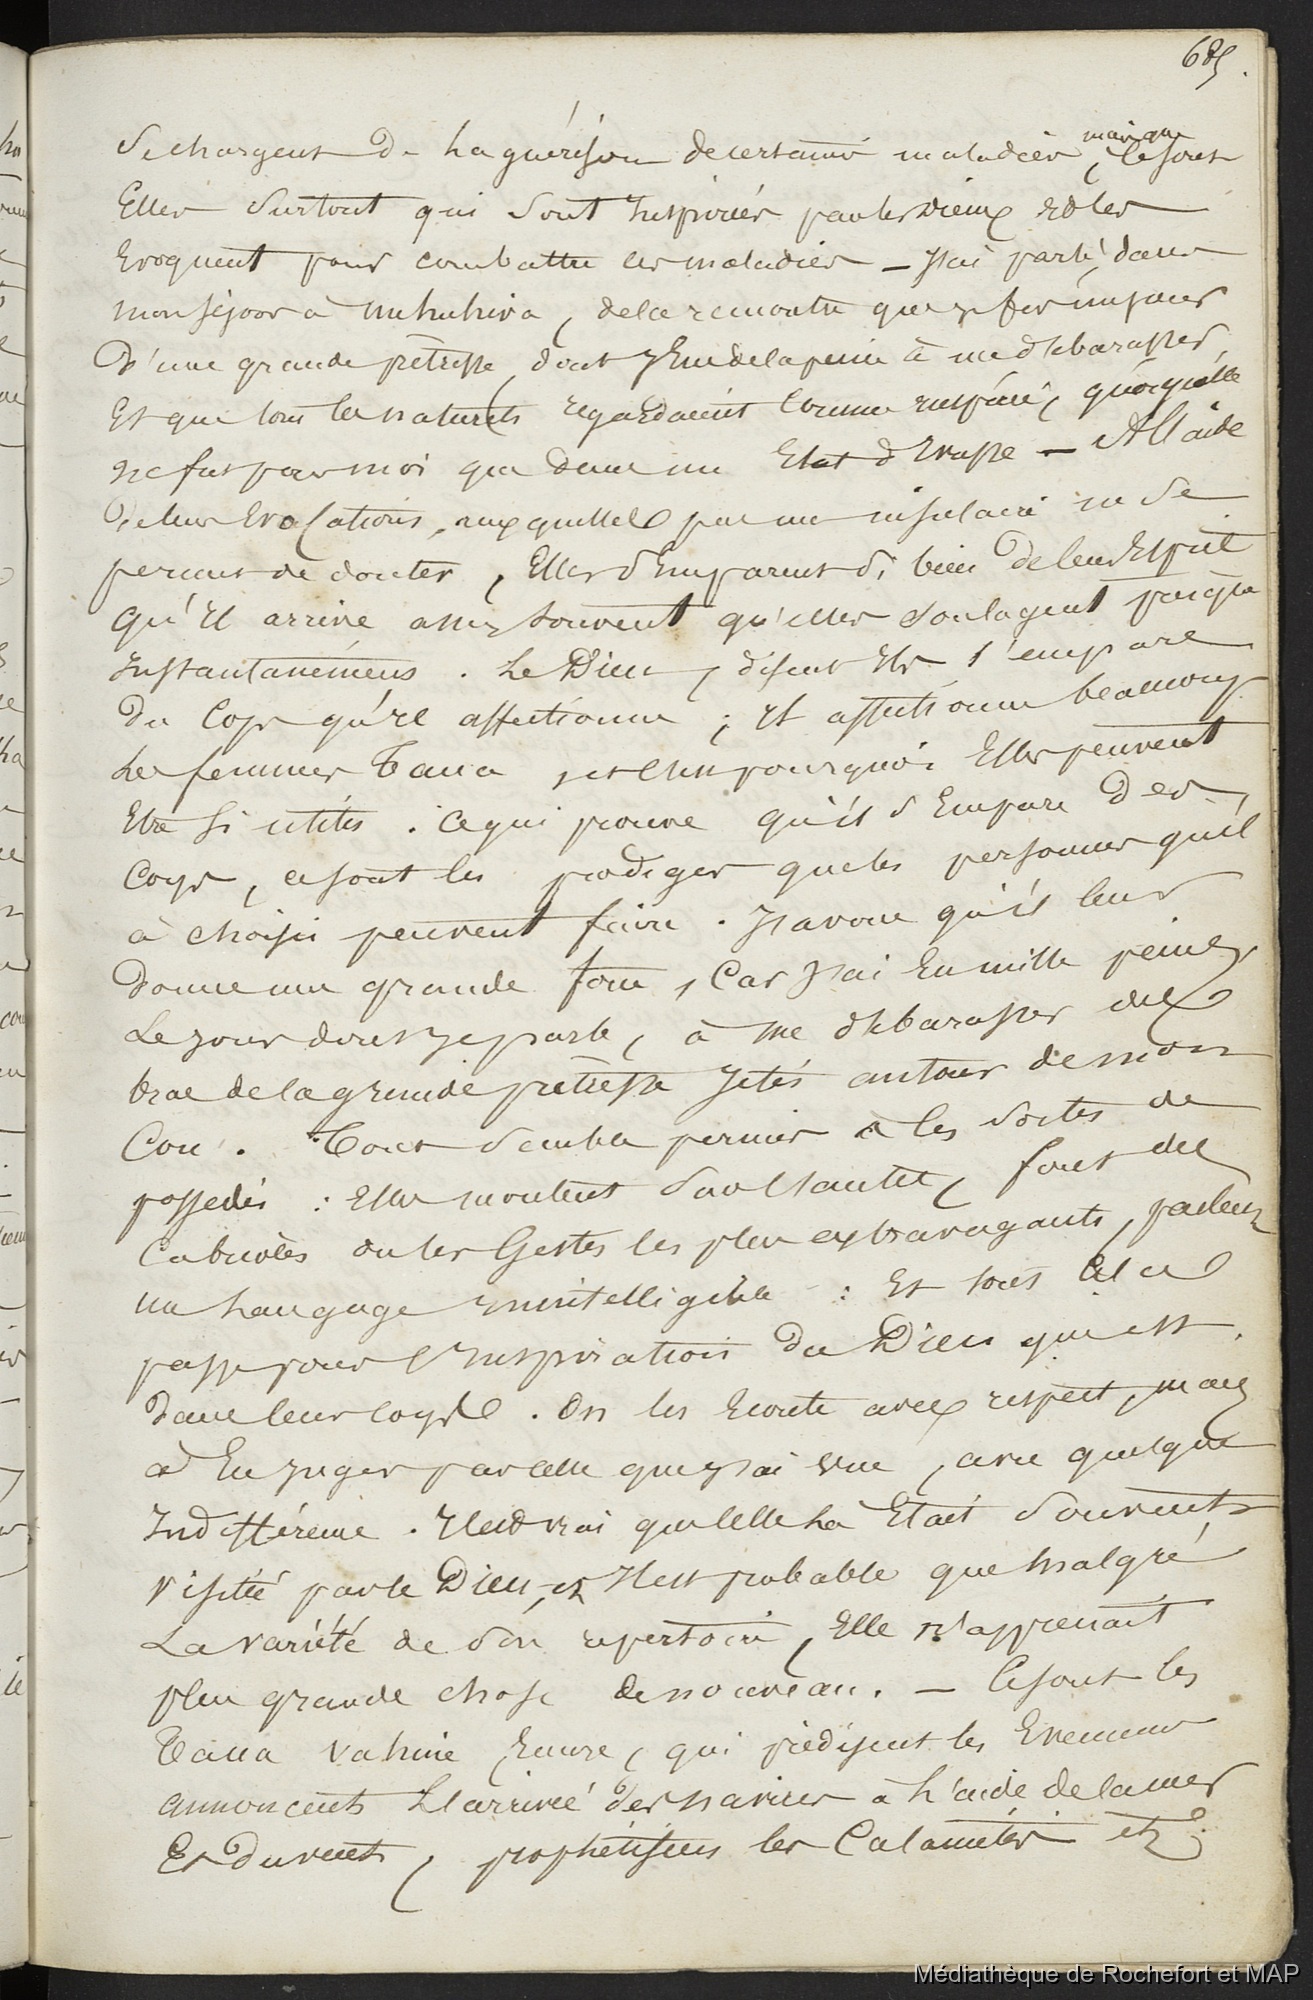 685.
Se chargent de la guérison de certaines maladies, mais que ce sont
Elles Surtout qui Sont Inspirées par les Dieux et les
Evoquent pour combattre les maladies — J'ai parlé, dans
mon séjour à Nukuhiva, de la rencontre que je fis un jour
D'une grande prêtresse, dont J'Eus de la peine à me débarasser,
Et que tous les naturels regardaient Comme inspirée, quoiqu'elle
ne fut pour moi que dans un Etat d'Ivresse — A l'aide
De leurs Evocations, auxquelles pas un insulaire ne Se
permet de douter, Elles S'Emparent Si bien de leur Esprit
Qu'Il arrive assez Souvent qu'elles Soulagent presque
Instantanément. Le Dieu, disent Ils s'empare
Du Corps qu'il affectionne; Il affectionne beaucoup
Les femmes Taua, et c'est pourquoi Elles peuvent
Etre Si utiles. Ce qui prouve qu'il S'Empare Des
Corps, ce sont les prodiges que les personnes qu'il
à choisi peuvent faire. J'avoue qu'il leur
Donne une grande force, Car J'ai Eu mille peines,
Le Jour dont Je parle, à me débarasser des
bras de la grande prêtresse Jetés autour de mon
Cou. Tout Semble permis à ces Sortes de
possedés : Elles montent Sur l'autel, font des
Cabrioles ou les Gestes les plus extravagants, parlent
un Langage Inintelligible : Et tout Cela
passe pour l'Inspiration du Dieu qui est
Dans leur corps. On les Ecoute avec respect, mais
à En Juger par celle que J'ai vue, avec quelque
Indifférence. Il est vrai que celle là Etait Souvent
Visitée par le Dieu, et Il est probable que malgré
La variété de Son repertoire, Elle n'apprenait
plus grande chose de nouveau. — Ce sont les
Taua Vahine Encore, qui prédisent les Evenemens
annoncent L'arrivée des navires à L'aide de la mer
Et du vent, prophétisent les Calamités etc.
Médiathèque de Rochefort et MAP